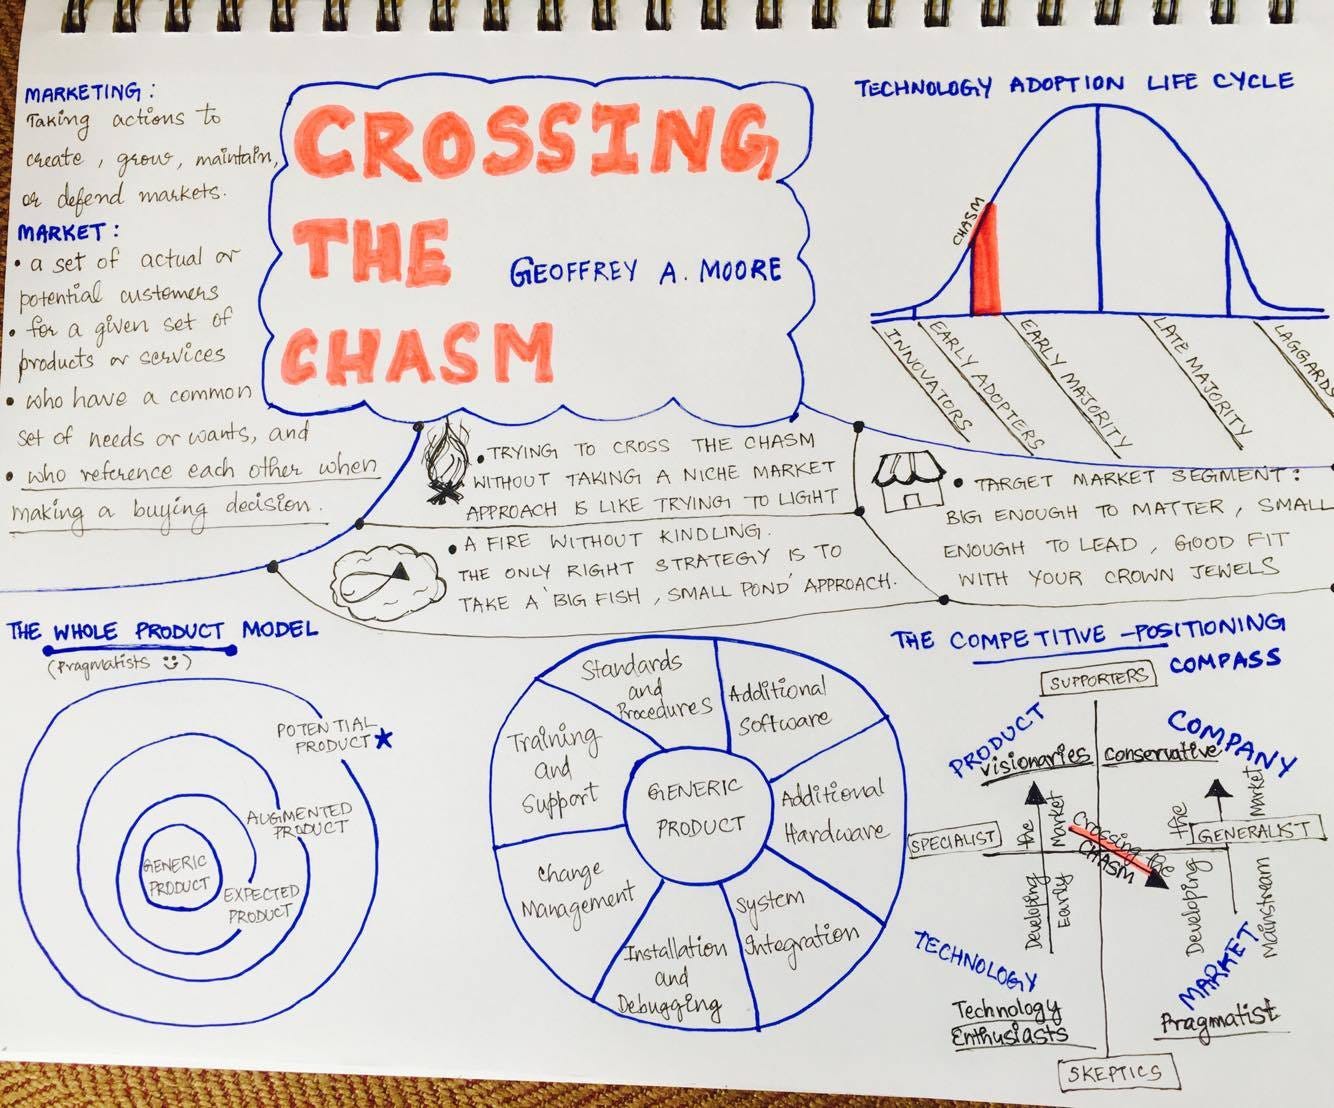 MARKETING:
Taking actions to
create, grow, maintain,
or defend markets.
MARKET:
• a set of actual or
potential customers
• for a given set of
products or services
• who have a common
set of needs or wants, and
• who reference each other when
making a buying decision.
CROSSING
THE
CHASM
GEOFFREY A. MOORE
TECHNOLOGY ADOPTION LIFE CYCLE
CHASM
INNOVATORS
EARLY ADOPTERS
EARLY MAJORITY
LATE MAJORITY
LAGGARDS
• TRYING TO CROSS THE CHASM
WITHOUT TAKING A NICHE MARKET
APPROACH IS LIKE TRYING TO LIGHT
• A FIRE WITHOUT KINDLING.
THE ONLY RIGHT STRATEGY IS TO
TAKE A 'BIG FISH, SMALL POND' APPROACH.
• TARGET MARKET SEGMENT:
BIG ENOUGH TO MATTER, SMALL
ENOUGH TO LEAD, GOOD FIT
WITH YOUR CROWN JEWELS
THE WHOLE PRODUCT MODEL
(Pragmatists)
POTENTIAL
PRODUCT
AUGMENTED
PRODUCT
EXPECTED
PRODUCT
GENERIC
PRODUCT
Standards
and
Procedures
Additional
Software
Additional
Hardware
System
Integration
Installation
and
Debugging
Change
Management
Training
and
Support
GENERIC
PRODUCT
THE COMPETITIVE-POSITIONING
COMPASS
SUPPORTERS
PRODUCT
visionaries
COMPANY
Conservative
SPECIALIST
GENERALIST
Developing the
Early Market
Crossing the
CHASM
Developing the
Mainstream Market
TECHNOLOGY
Technology
Enthusiasts
MARKET
Pragmatist
SKEPTICS